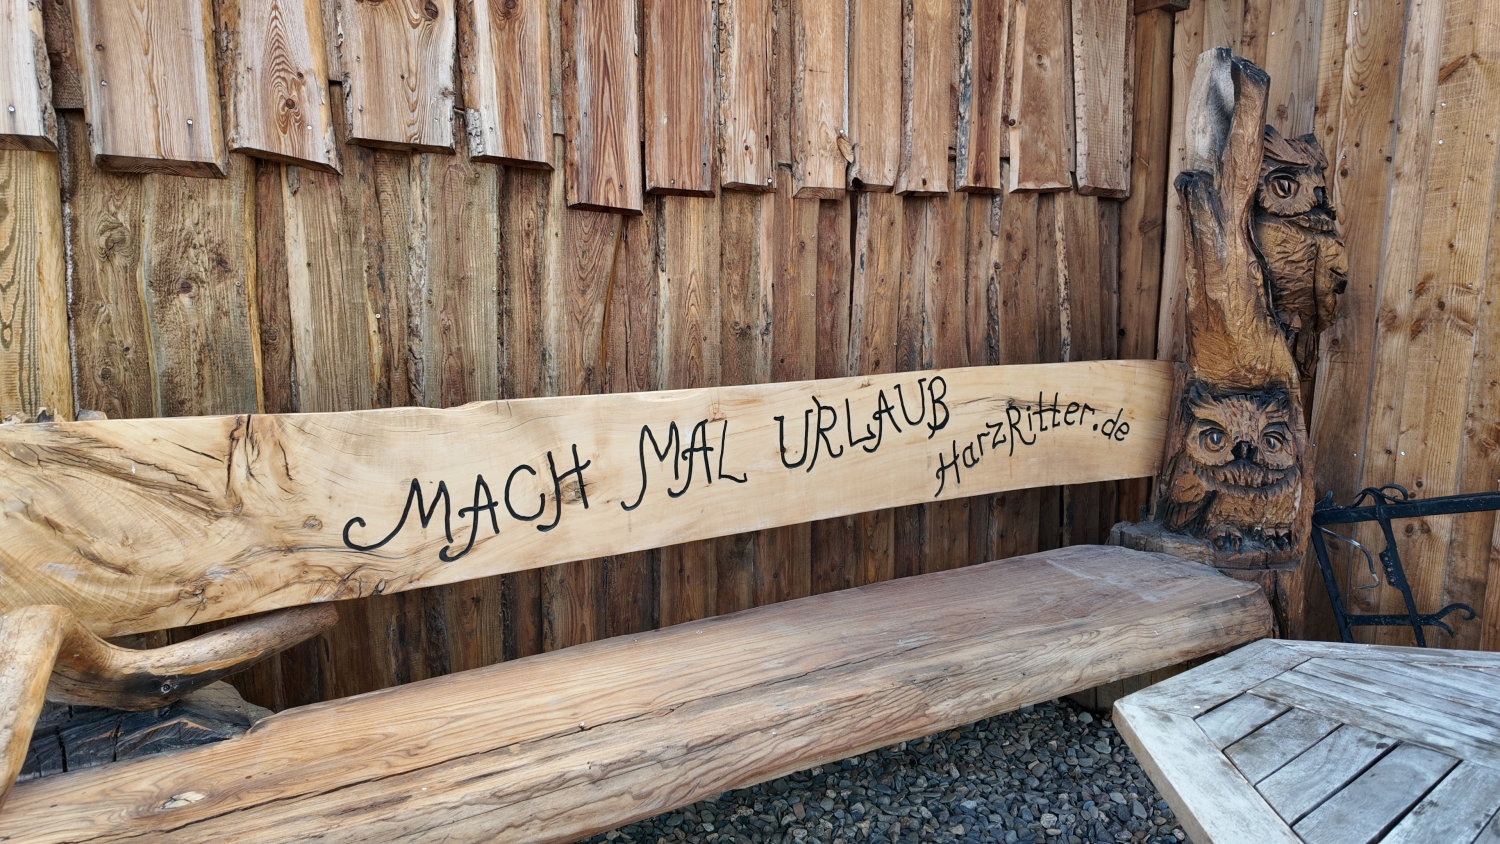 MACH MAL URLAUB
HarzRitter.de